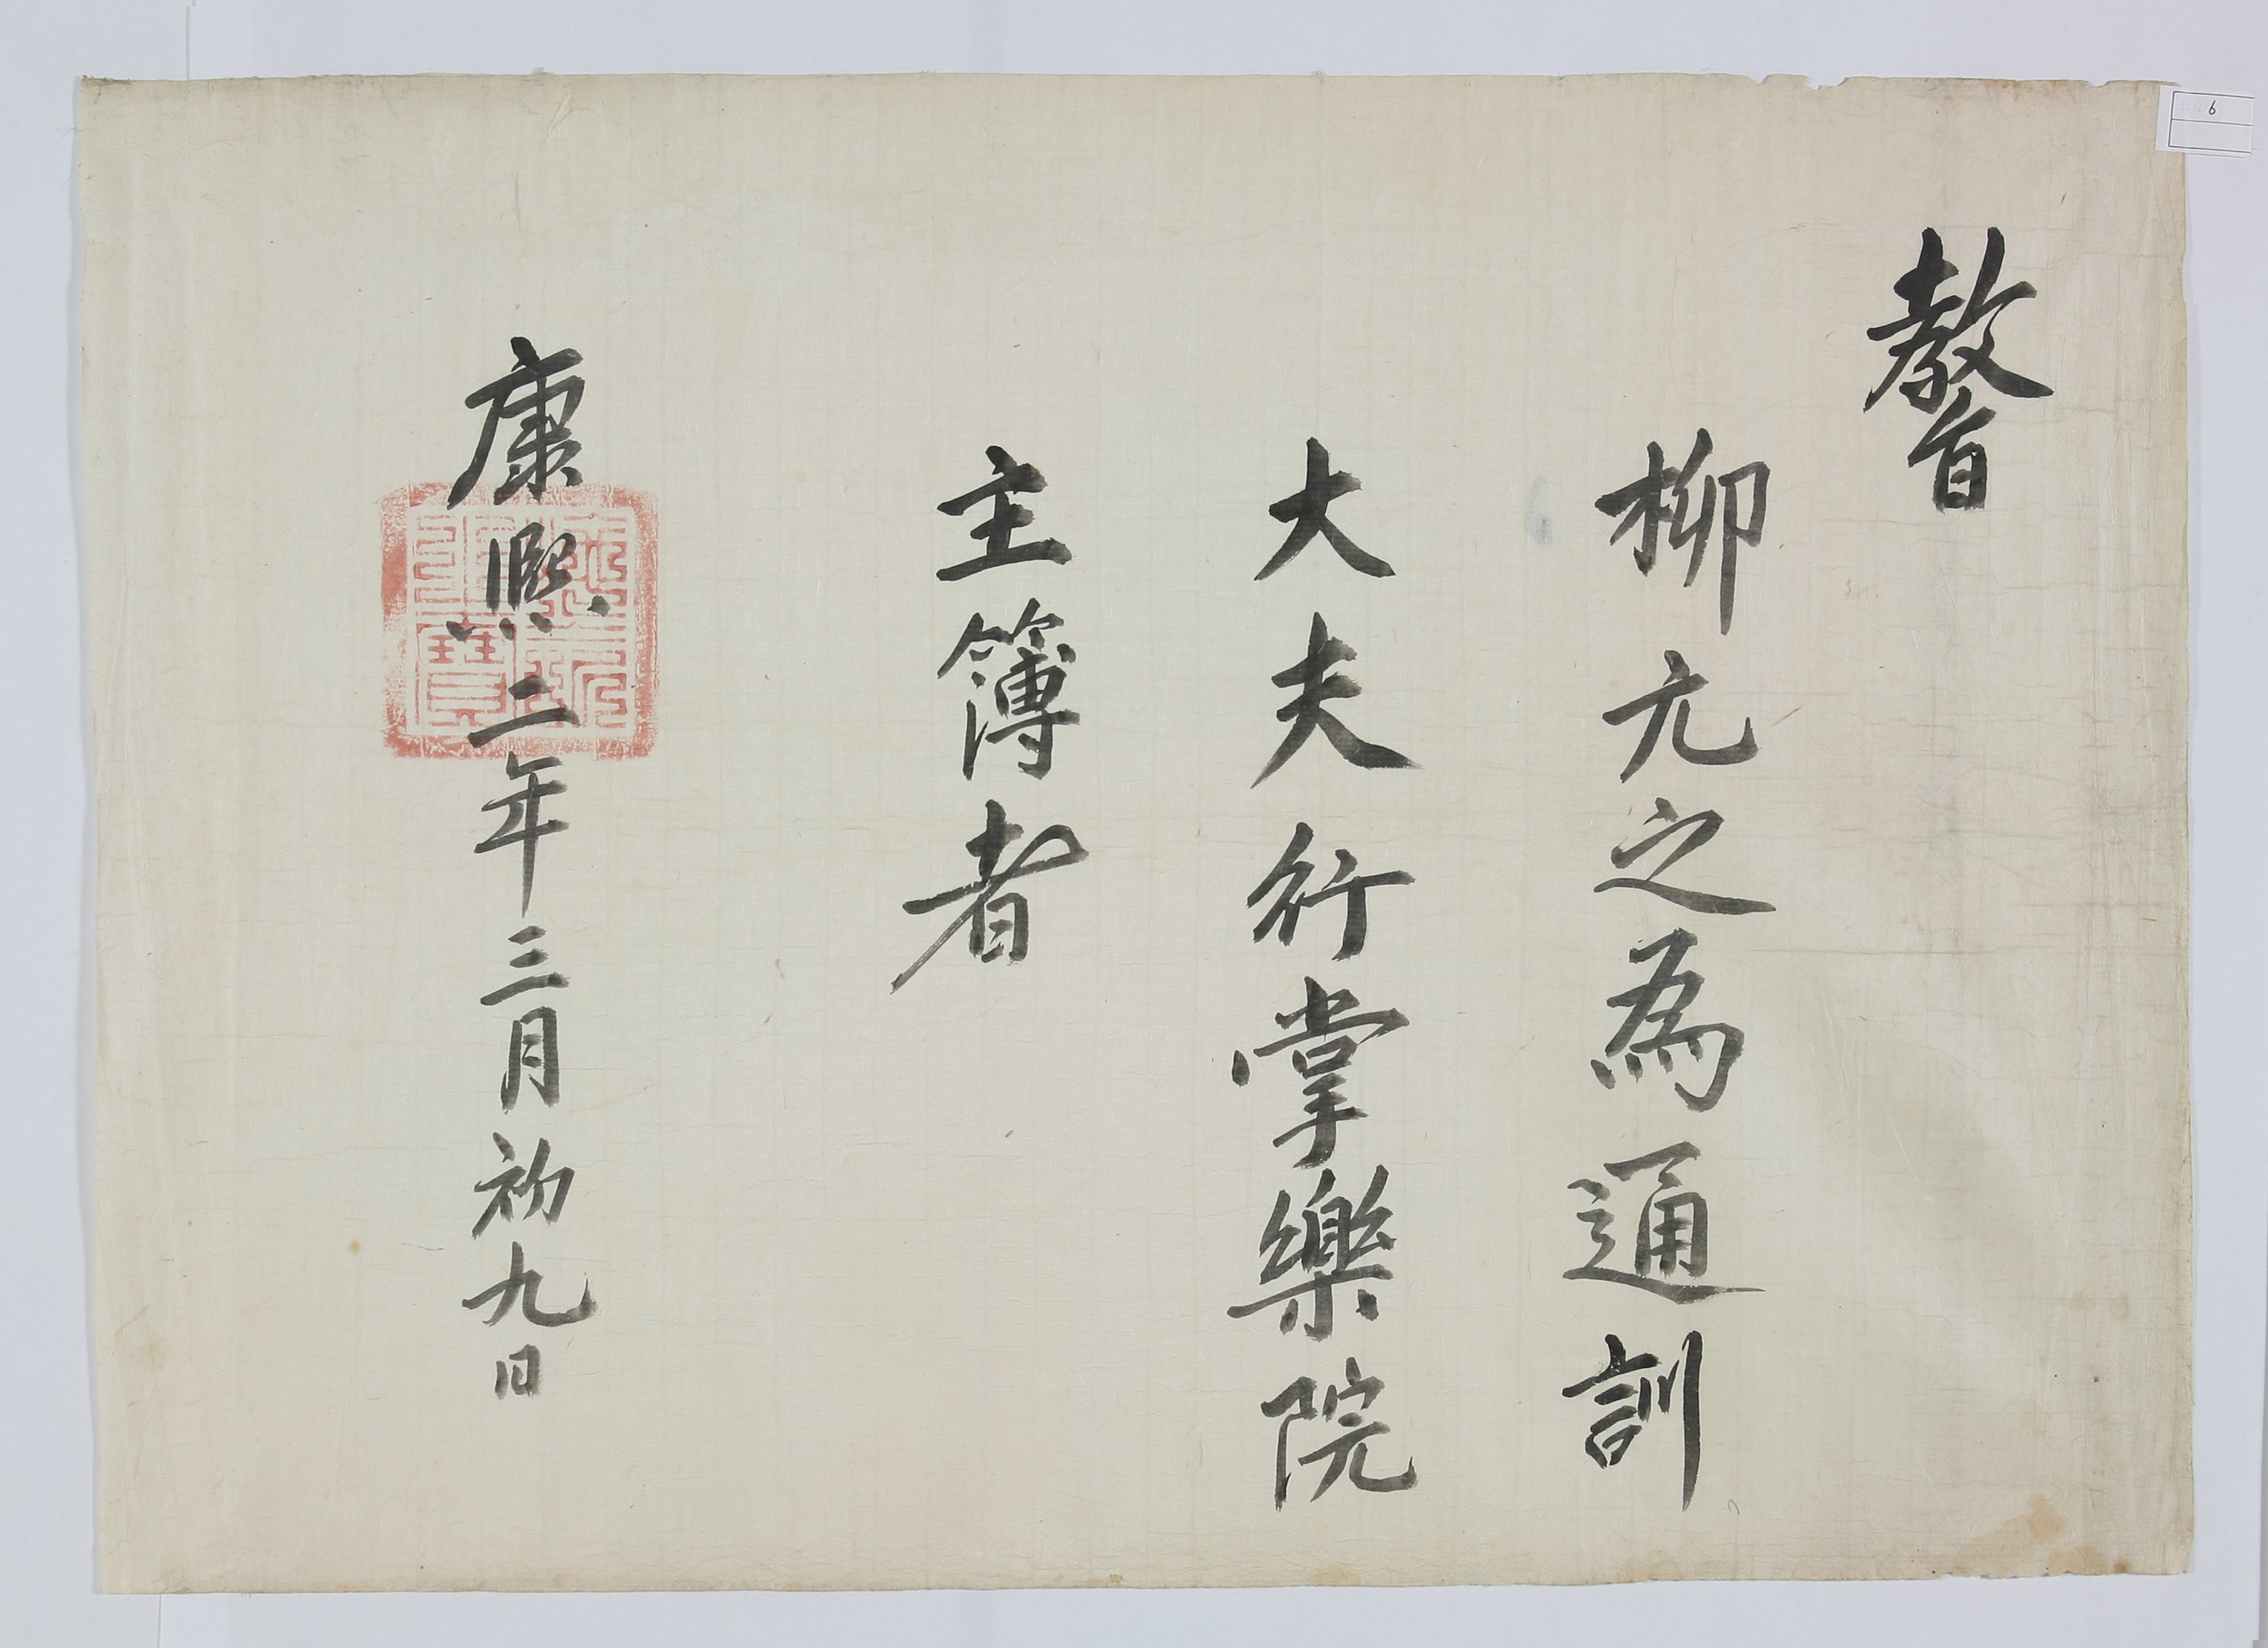 教旨
柳元之為通訓
大夫行掌樂院
主簿者
康熙二年三月初九日
施命
之寶
6